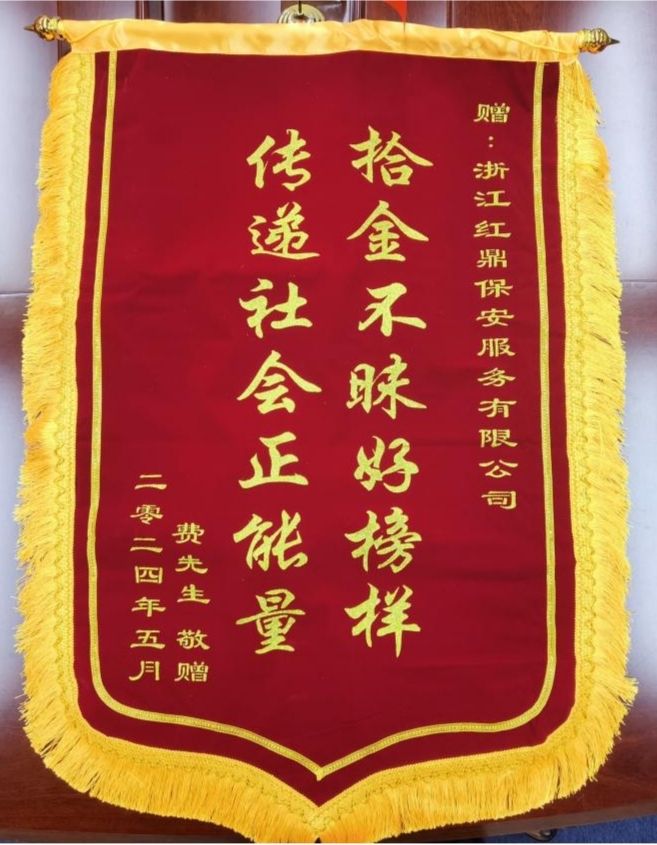 赠：浙江红鼎保安服务有限公司
拾金不昧好榜样
传递社会正能量
费先生 敬赠
二零二四年五月